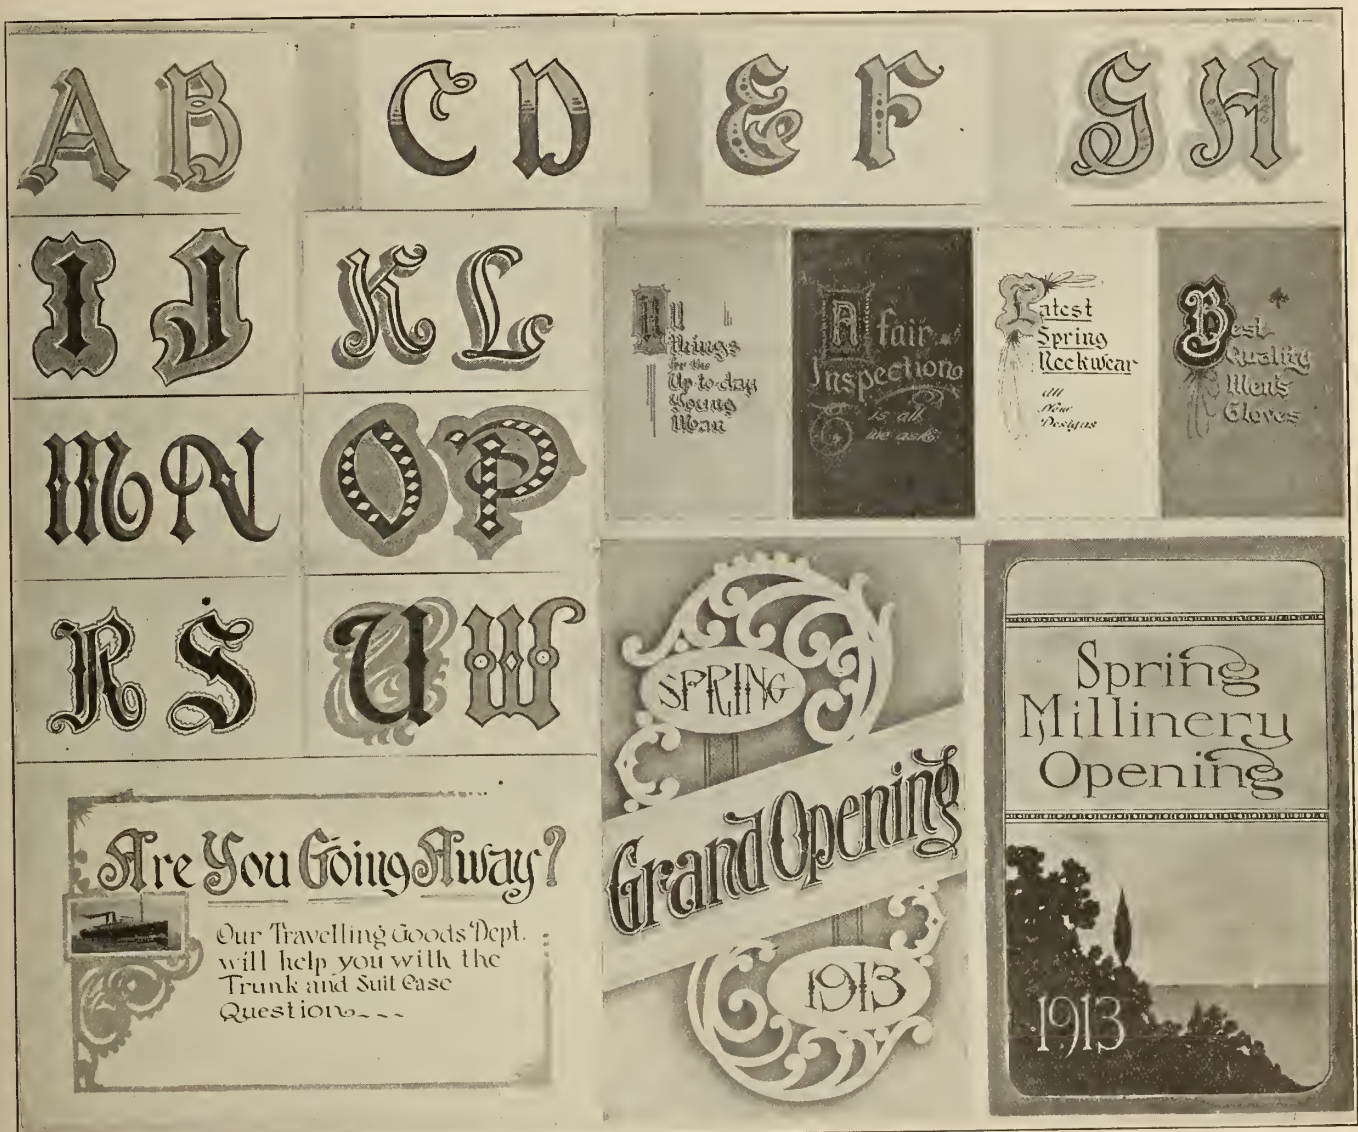 A B
C D
E F
G H
I J
K L
M N
O P
R S
U W
All
things
for the
Up-to-day
Young
Man
A fair
Inspection
is all
we ask.
Latest
Spring
Neckwear
all
New
Designs
Best
Quality
Men's
Gloves
Are You Going Away?
Our Travelling Goods Dept.
will help you with the
Trunk and Suit Case
Question---
SPRING
Grand Opening
1913
Spring
Millinery
Opening
1913